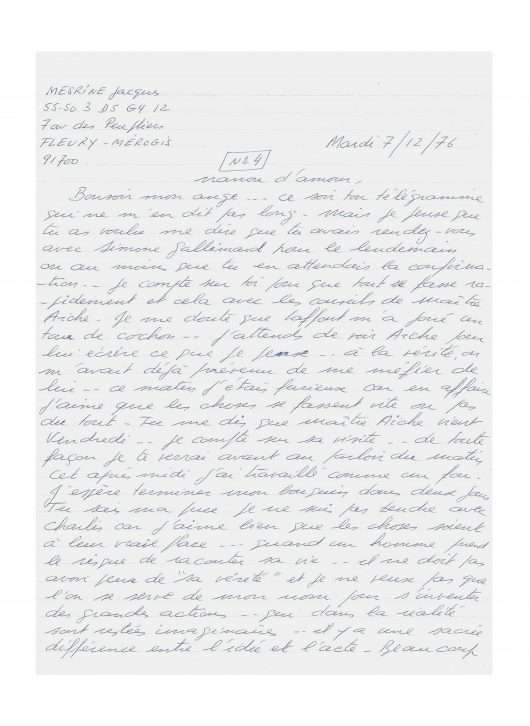 MESRINE Jacques
55-50 3 D5 G4 12
7 av des Peupliers
FLEURY-MEROGIS
91700
Mardi 7/12/76
N° 4
nanou d'amour,
Bonsoir mon ange -- ce soir ton télégramme
qui ne m'en dit pas long - mais je pense que
tu as voulu me dire que tu avais rendez-vous
avec Simone Gallimard pour le lendemain
ou au moins que tu en attendais la confirma-
-tion -- je compte sur toi pour que tout se passe ra-
-pidement et cela avec les conseils de maître
Aiche - Je me doute que Laffont m'a joué un
tour de cochon -- J'attends de voir Aiche pour
lui écrire ce que je pense -- à la vérité, on
m'avait déjà prévenu de me méfier de
lui -- ce matin j'étais furieux car en affaire
j'aime que les choses se passent vite ou pas
du tout - Tu me dis que maître Aiche vient
Vendredi -- je compte sur sa visite -- de toute
façon je te verrai avant au parloir du matin
Cet après midi j'ai travaillé comme un fou.
J'espère terminer mon bouquin dans deux jours
Tu sais ma puce je ne suis pas tendre avec
Charles car j'aime bien que les choses soient
à leur vraie place -- quand un homme prend
le risque de raconter sa vie -- il ne doit pas
avoir peur de "sa vérité" et je ne veux pas que
l'on se serve de mon nom pour s'inventer
des grandes actions -- qui dans la réalité
sont restées imaginaires -- il y a une sacrée
différence entre l'idée et l'acte - Beaucoup